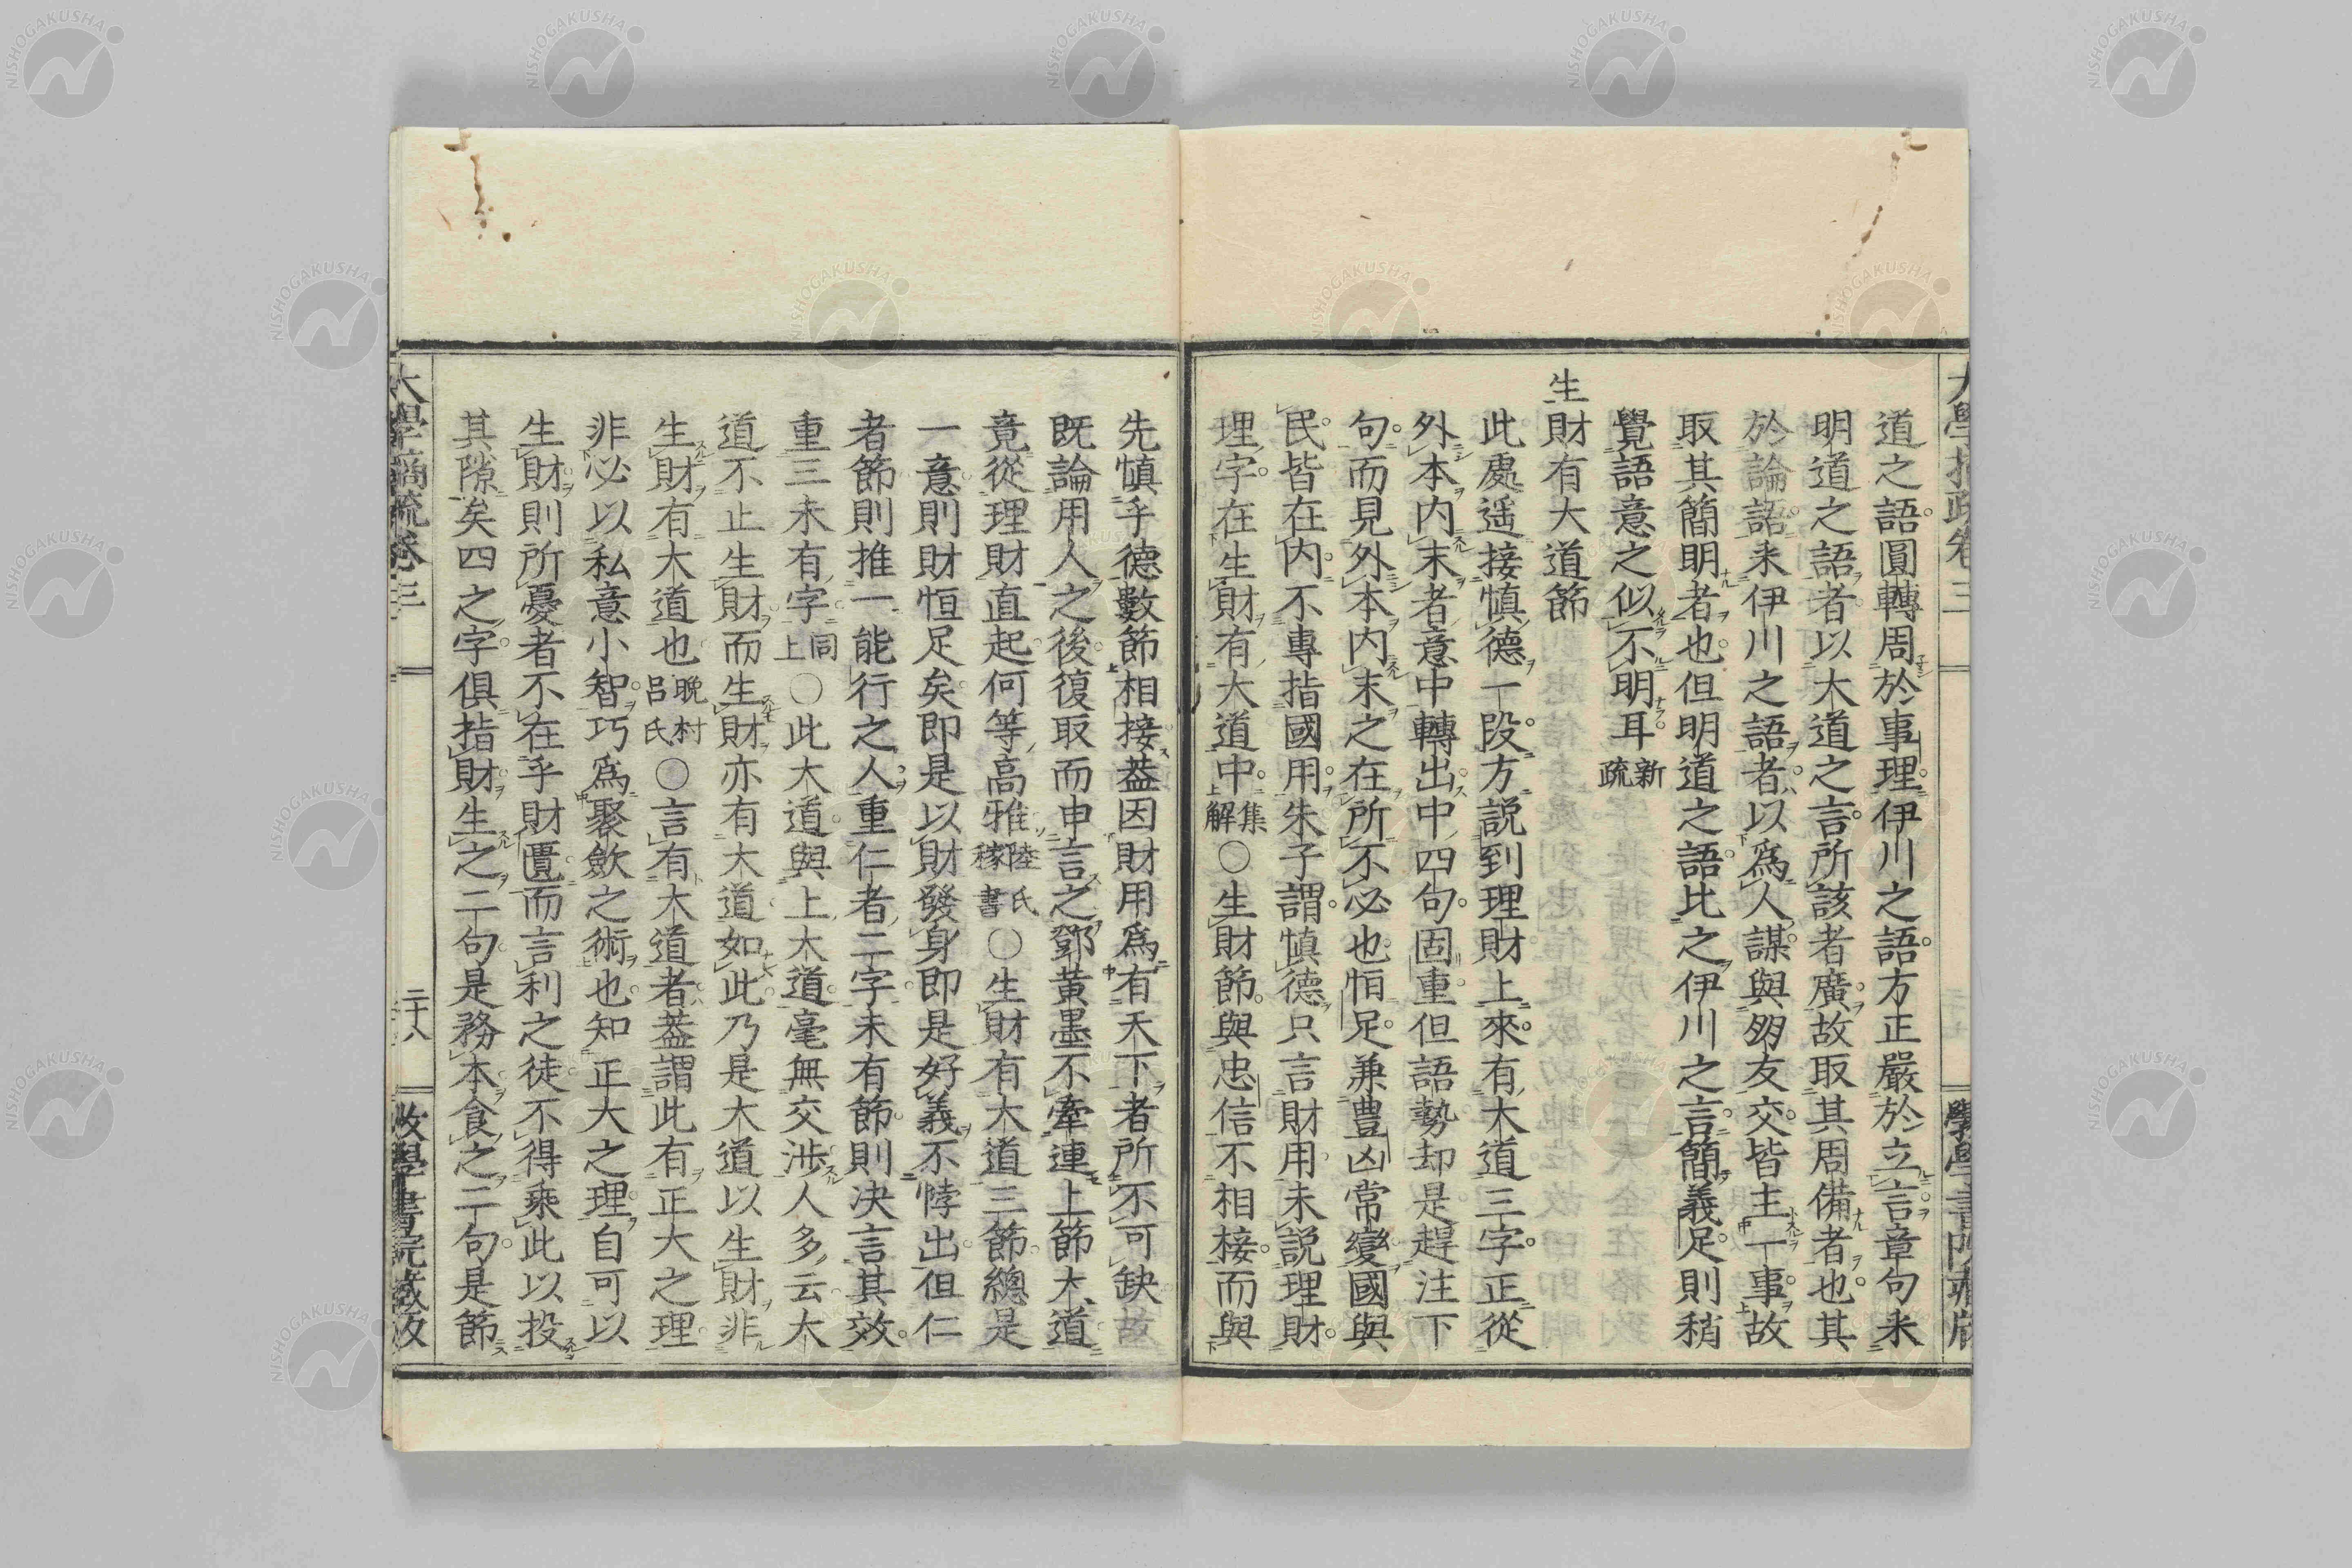 道之語圓轉周於事理伊川之語方正嚴於立言章句未
明道之語者以大道之言所該者廣故取其周備者也其
於論語釆伊川之語者以爲人謀與朋友交皆主一事故
取其簡明者也但明道之語比之伊川之言簡義足則稍
覺語意之似不明耳新疏
生財有大道節
此處遥接慎德一段方説到理財上來有大道三字正從
外本内末者意中轉出中四句固重但語勢却是趕注下
句而見外本内末之在所不必也恒足兼豊凶常變國與
民皆在内不專指國用朱子謂慎德只言財用未説理財
理字在生財有大道中集解〇生財節與忠信不相接而與
先慎乎德數節相接葢因財用爲有天下者所不可缺故
既論用人之後復取而申言之鄧黄墨不牽連上節大道
竟從理財直起何等高雅陸氏稼書〇生財有大道三節總是
一意則財恒足矣即是以財發身即是好義不悖出但仁
者節則推一能行之人重仁者二字未有節則决言其效
重三未有字同上〇此大道與上大道毫無交涉人多云大
道不止生財而生財亦有大道如此乃是大道以生財非
生財有大道也晩村呂氏〇言有大道者葢謂此有正大之理
非必以私意小智巧爲聚斂之術也知正大之理自可以
生財則所憂者不在乎財匱而言利之徒不得乘此以投
其隙矣四之字俱指財生之二句是務本食之二句是節
大學摘疏卷三
二十八